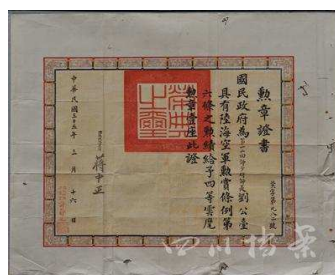 勲章證書
國民政府為
劉公臺
具有陸海空軍勲賞條例第
六條之勲績給予四等雲麾
勲章壹座此證
蔣中正
中華民國三十五年三月十六日
榮字第九八六號
四川档案